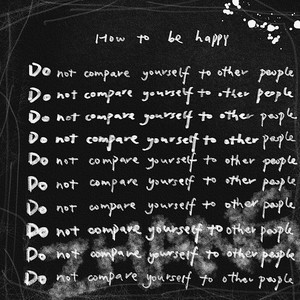 How to be happy
Do not compare yourself to other people
Do not compare yourself to other people
Do not compare yourself to other people
Do not compare yourself to other people
Do not compare yourself to other people
Do not compare yourself to other people
Do not compare yourself to other people
Do not compare yourself to other people
Do not compare yourself to other people
Do not compare yourself to other people